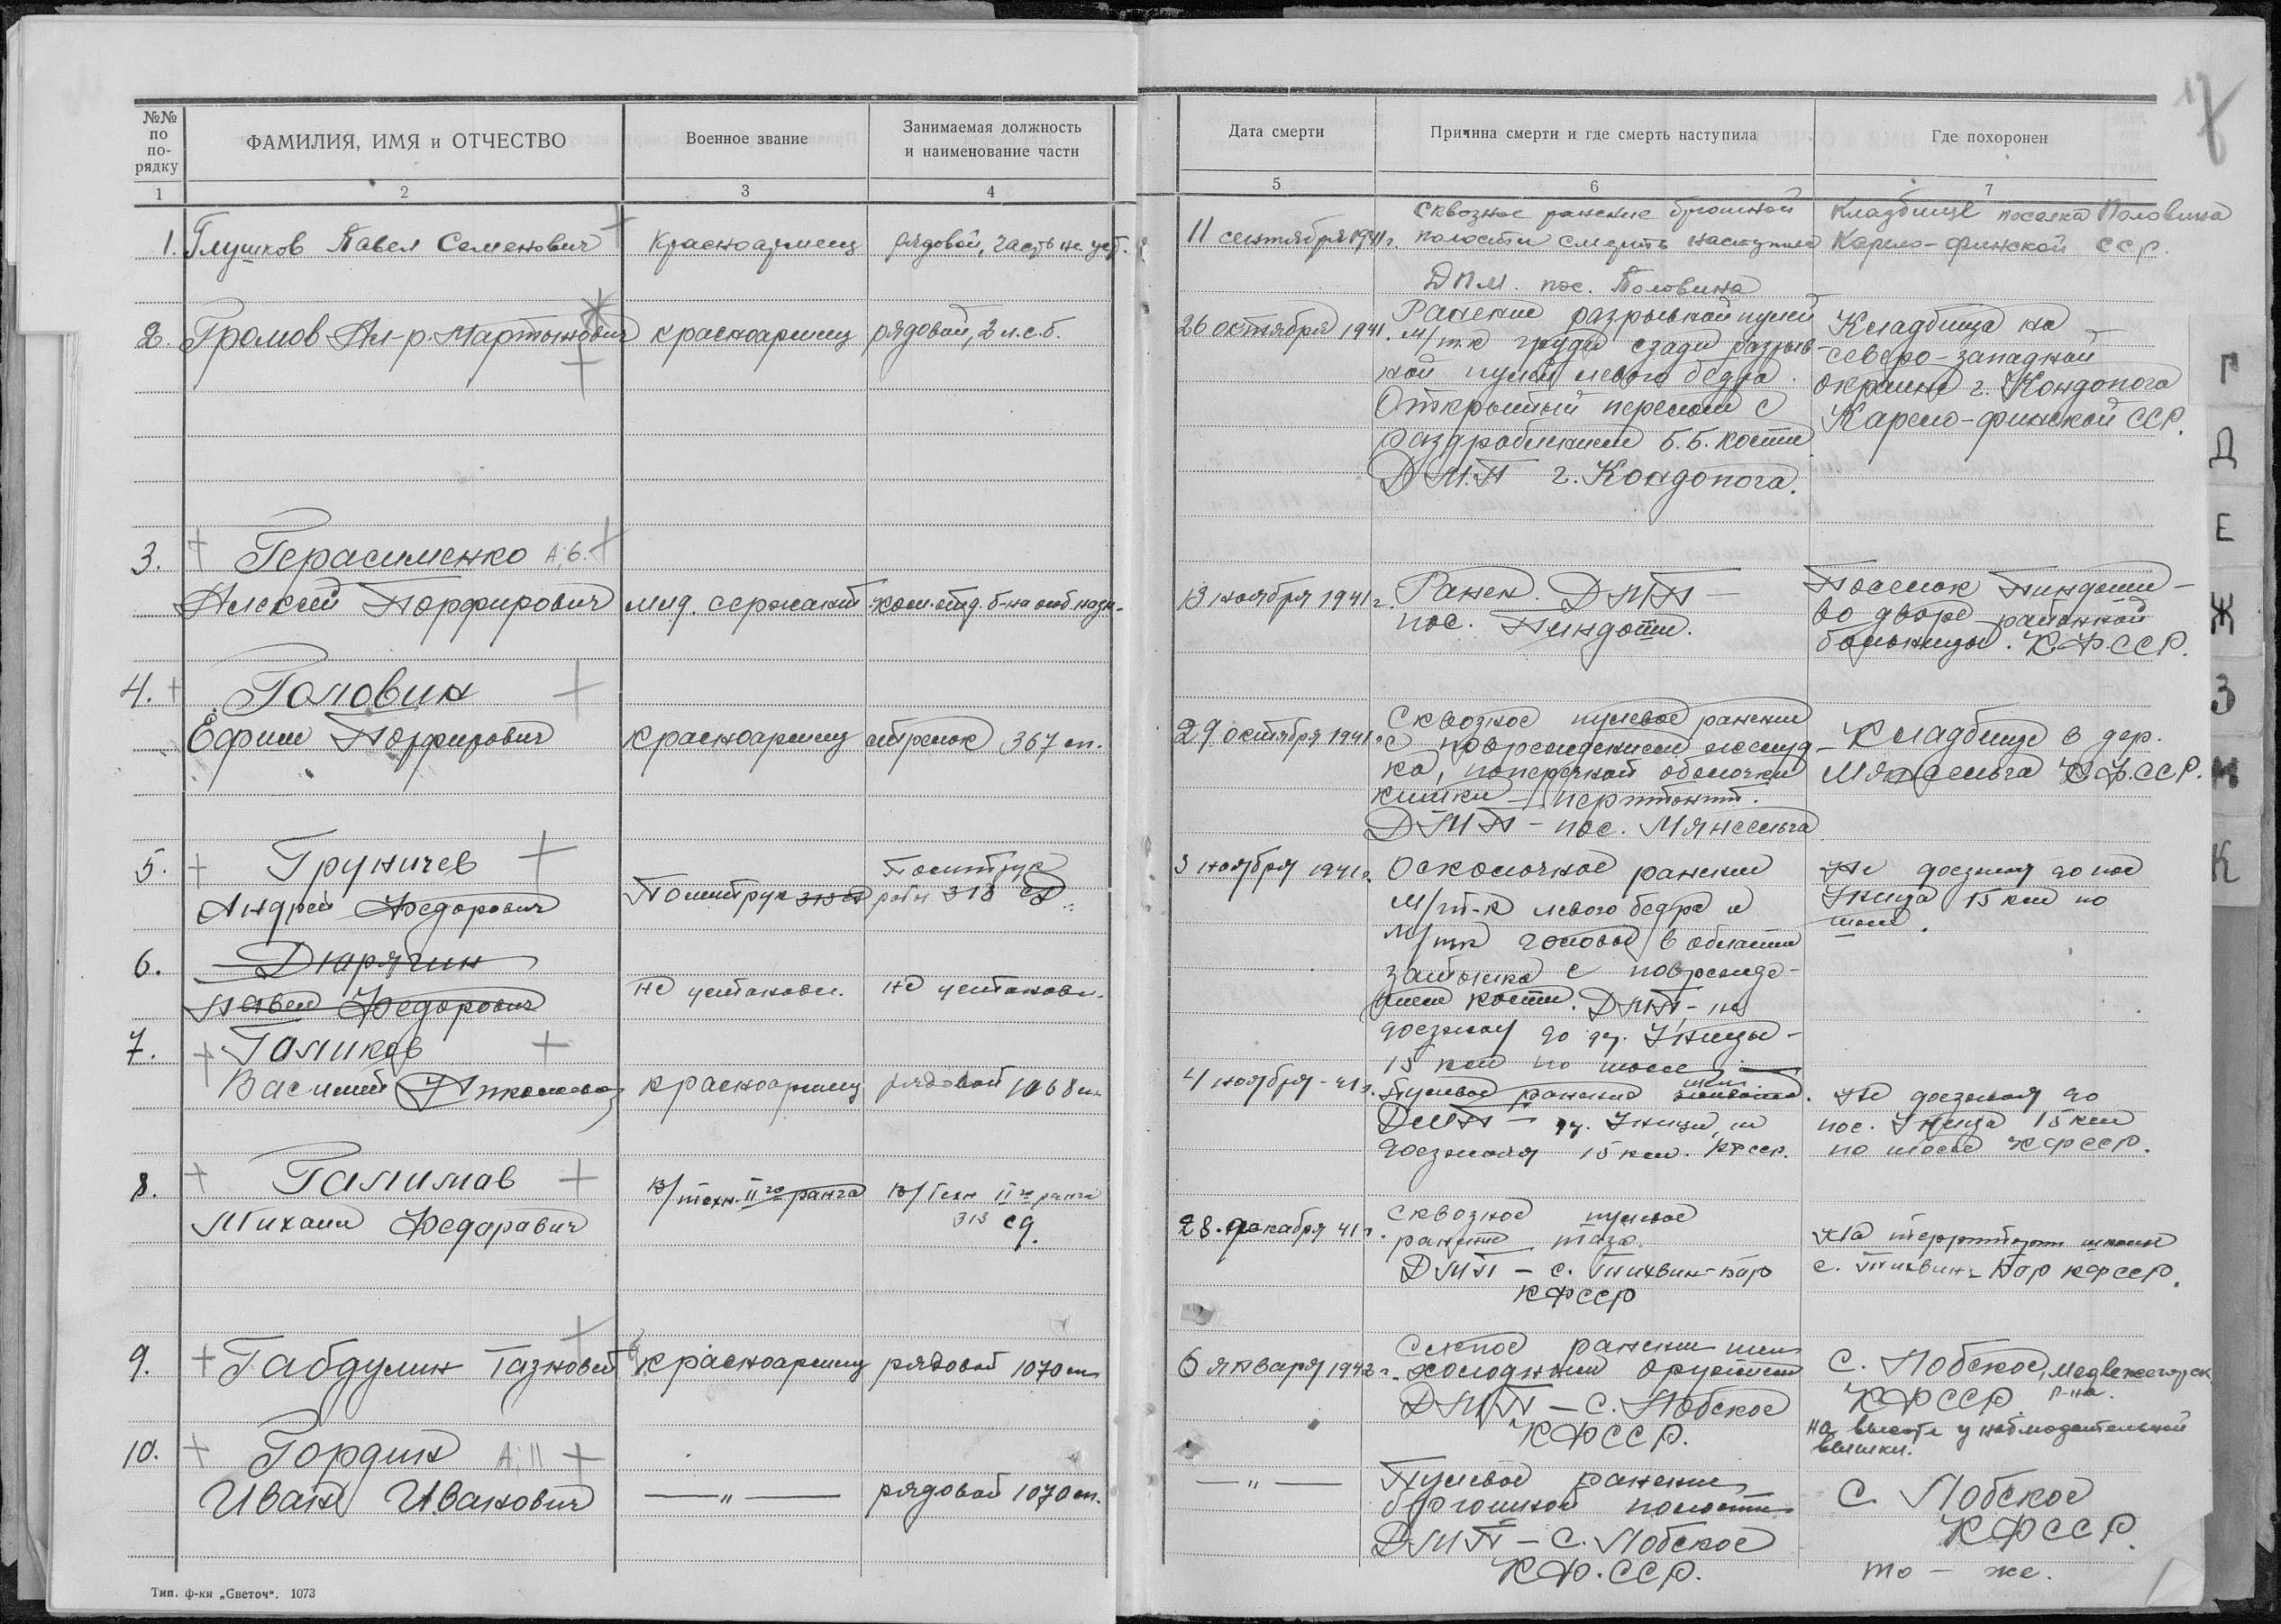 17
№№ по по-рядку
ФАМИЛИЯ, ИМЯ и ОТЧЕСТВО
Военное звание
Занимаемая должность и наименование части
Дата смерти
Причина смерти и где смерть наступила
Где похоронен
1 2 3 4 5 6 7
1. Глушков Павел Семенович
Красноармеец
рядовой, часть не уст.
11 сентября 1941 г.
Сквозное ранение брюшной
полости смерть наступила
ДПМ. пос. Половина
Кладбище поселка Половина
Карело-финской ССР.
2. Громов Ал-р. Мартынович
красноармеец
рядовой, 2 л.с.б.
26 октября 1941.
Ранение разрывной пулей
м/тк груди сзади разрыв-
ной пулей левого бедра.
Открытый перелом с
раздроблением б.б. кости
ДМП г. Кондопога.
Кладбище на
северо-западной
окраине г. Кондопога
Карело-финской ССР.
3. Герасименко А; 6.
Алексей Порфирович
млад. сержант
ком. отд. б-на особ. назн.
13 ноября 1941 г.
Ранен. ДМП —
пос. Пиндоши.
Поселок Пиндоши —
во дворе районной
больницы. К.Ф.ССР.
4. Головин
Ефим Порфирович
красноармеец
стрелок 367 сп.
29 октября 1941.
Сквозное пулевое ранение
с повреждением желуд-
ка, поперечной оболочки
кишки — перитонит.
ДМП — пос. Мянсельга
Кладбище в дер.
Мянсельга К.Ф.ССР.
5. Груничев
Андрей Федорович
Политрук 313 сд
Политрук
роты 313 сд
3 ноября 1941 г.
Осколочное ранение
м/т-к левого бедра и
м/тк головы в области
затылка с поврежде-
нием кости. ДМП — не
доезжая до д. Уницы —
15 км по шоссе
Не доезжая до пос
Уница 15 км по
шоссе.
6. Дюрягин
Павел Федорович
не установл.
не установл.
7. Галиков
Василий
красноармеец
рядовой 1068 сп
4 ноября — 41 г.
Пулевое ранение живота.
ДМП — д. Уницы, не
доезжая 15 км. КФССР.
Не доезжая до
пос. Уница 15 км
по шоссе КФССР.
8. Галимов
Михаил Федорович
в/техн. IIго ранга
В/техн IIго ранга
313 сд.
28. декабря 41 г.
Сквозное пулевое
ранение таза.
ДМП — с. Тихвин-Бор
КФССР
На территории школы
с. Тихвин-Бор КФССР.
9. Габдулин Газновей
красноармеец
рядовой 1070 сп
6 января 1942 г.
Слепое ранение шеи
холодным оружием
ДМП — С. Лобское
КФССР.
С. Лобское, Медвежегорск
р-на.
КФССР
на высоте у наблюдательной
вышки.
10. Гордин А; 11
Иван Иванович
— " —
рядовой 1070 сп.
— " —
Пулевое ранение
брюшной полости
ДМП — С. Лобское
КФ.ССР.
С Лобское
КФССР.
то — же.
Г
Д
Е
Ж
З
И
К
Тип. ф-ки „Светоч". 1073